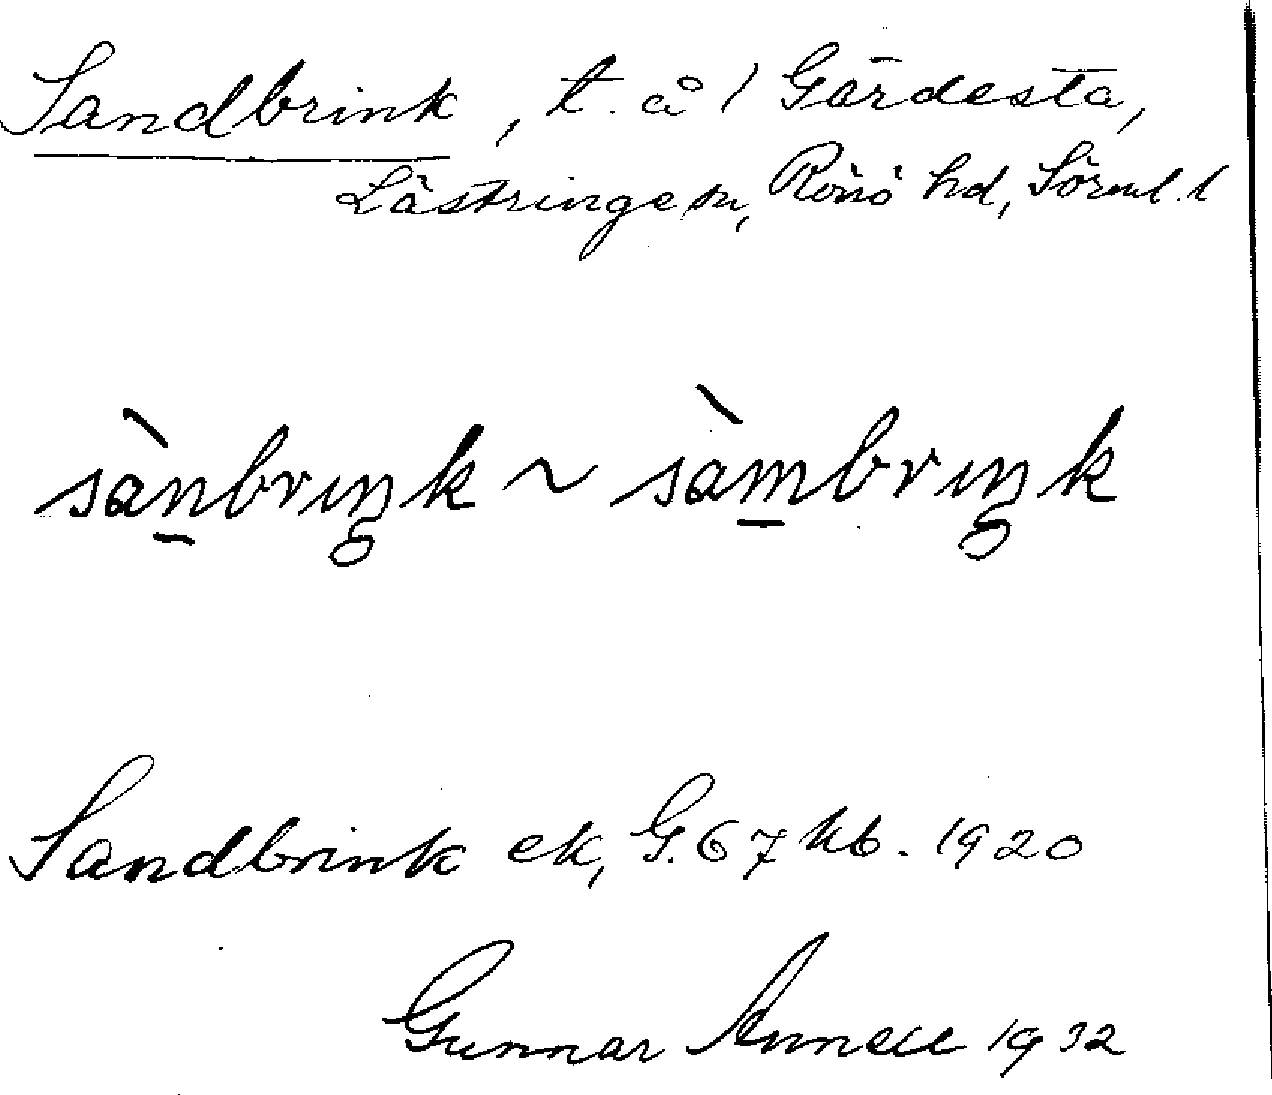 Sandbrink, t. å 1 Gärdesta,
Lästringe sn, Rönö hd, Sörml. l
sànbrıŋk ~ sàmbrıŋk
Sandbrink ek, G. 67 kb. 1920
Gunnar Annell 1932